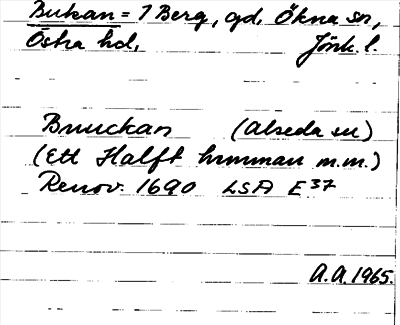 Bukan = 7 Berg, gd, Ökna sn,
Östra hd, Jönk. l.
Bnuckan (Alseda sn)
(Ett Halft hmman m.m.)
Renov. 1690 LSA E37
A.A. 1965.